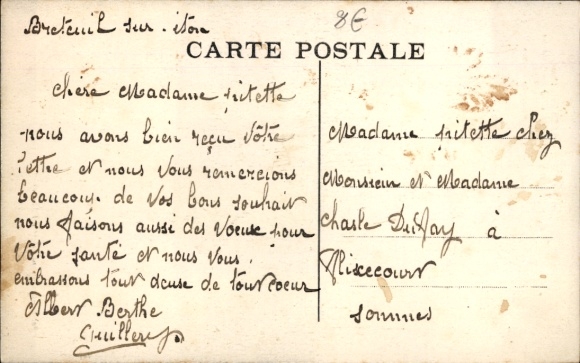 Breteuil sur. iton
8€
CARTE POSTALE
chère Madame pitette
nous avons bien reçu Vôtre
lettre et nous vous remercions
beaucoup de Vos bons souhait
nous faisons aussi des Voeux pour
Votre santé et nous Vous
embrassons tout deuse de tout coeur
Albert Berthe
Madame pitette chez
Monsieur et Madame
charle Dufay à
flixecourt
sommes